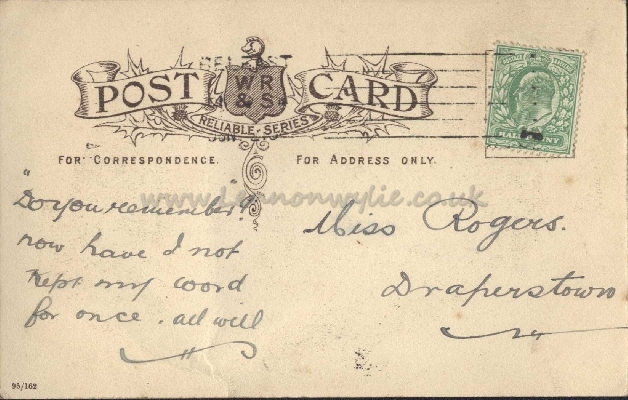 BELFAST
POST CARD
WR
& S
RELIABLE SERIES
FOR CORRESPONDENCE.
FOR ADDRESS ONLY.
HALFPENNY
www.Lennonwylie.co.uk
"Do you remember?"
now have I not
kept my word
for once. all will
Miss Rogers.
Draperstown
95/162